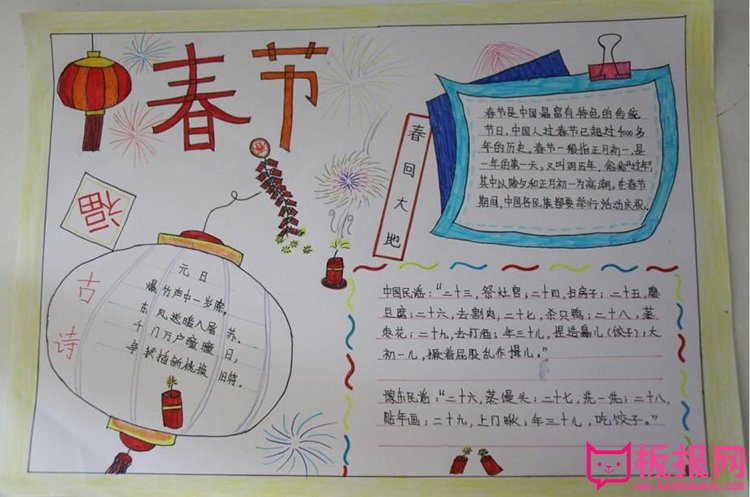 春节
福
春回大地
春节是中国最富有特色的传统
节日,中国人过春节已超过4000多
年的历史。春节一般指正月初一,是
一年的第一天,又叫阴历年,俗称"过年"。
其中以除夕和正月初一为高潮。在春节
期间,中国各民族都要举行活动庆祝。
古诗
元日
爆竹声中一岁除,
东风送暖入屠苏。
千门万户曈曈日,
争把新桃换旧符。
中国民谣:"二十三,祭灶官;二十四,扫房子;二十五,磨
豆腐;二十六,去割肉;二十七,杀只鸡;二十八,蒸
枣花;二十九,去打酒;年三十儿,捏造鼻儿(饺子);大
初一儿,撅着屁股乱作揖儿。"
豫东民谣:"二十六,蒸馒头;二十七,洗一洗;二十八,
贴年画;二十九,上门瞅;年三十儿,吃饺子。"
板报网